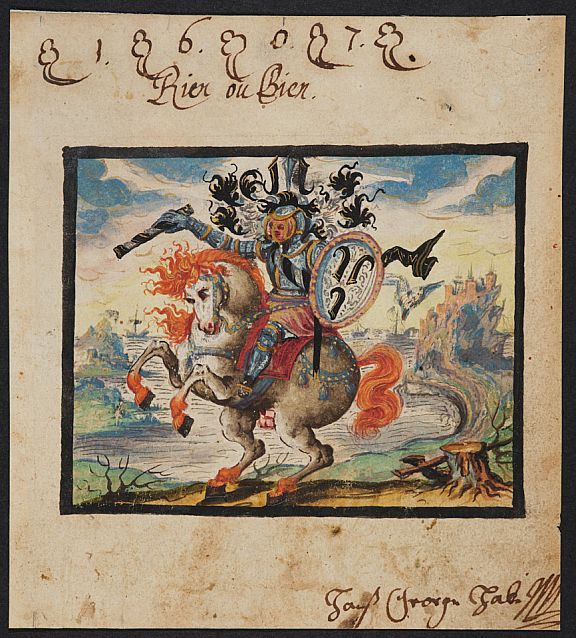 1. 6. 0. 7.
Rien ou Bien.
Hanß Georg